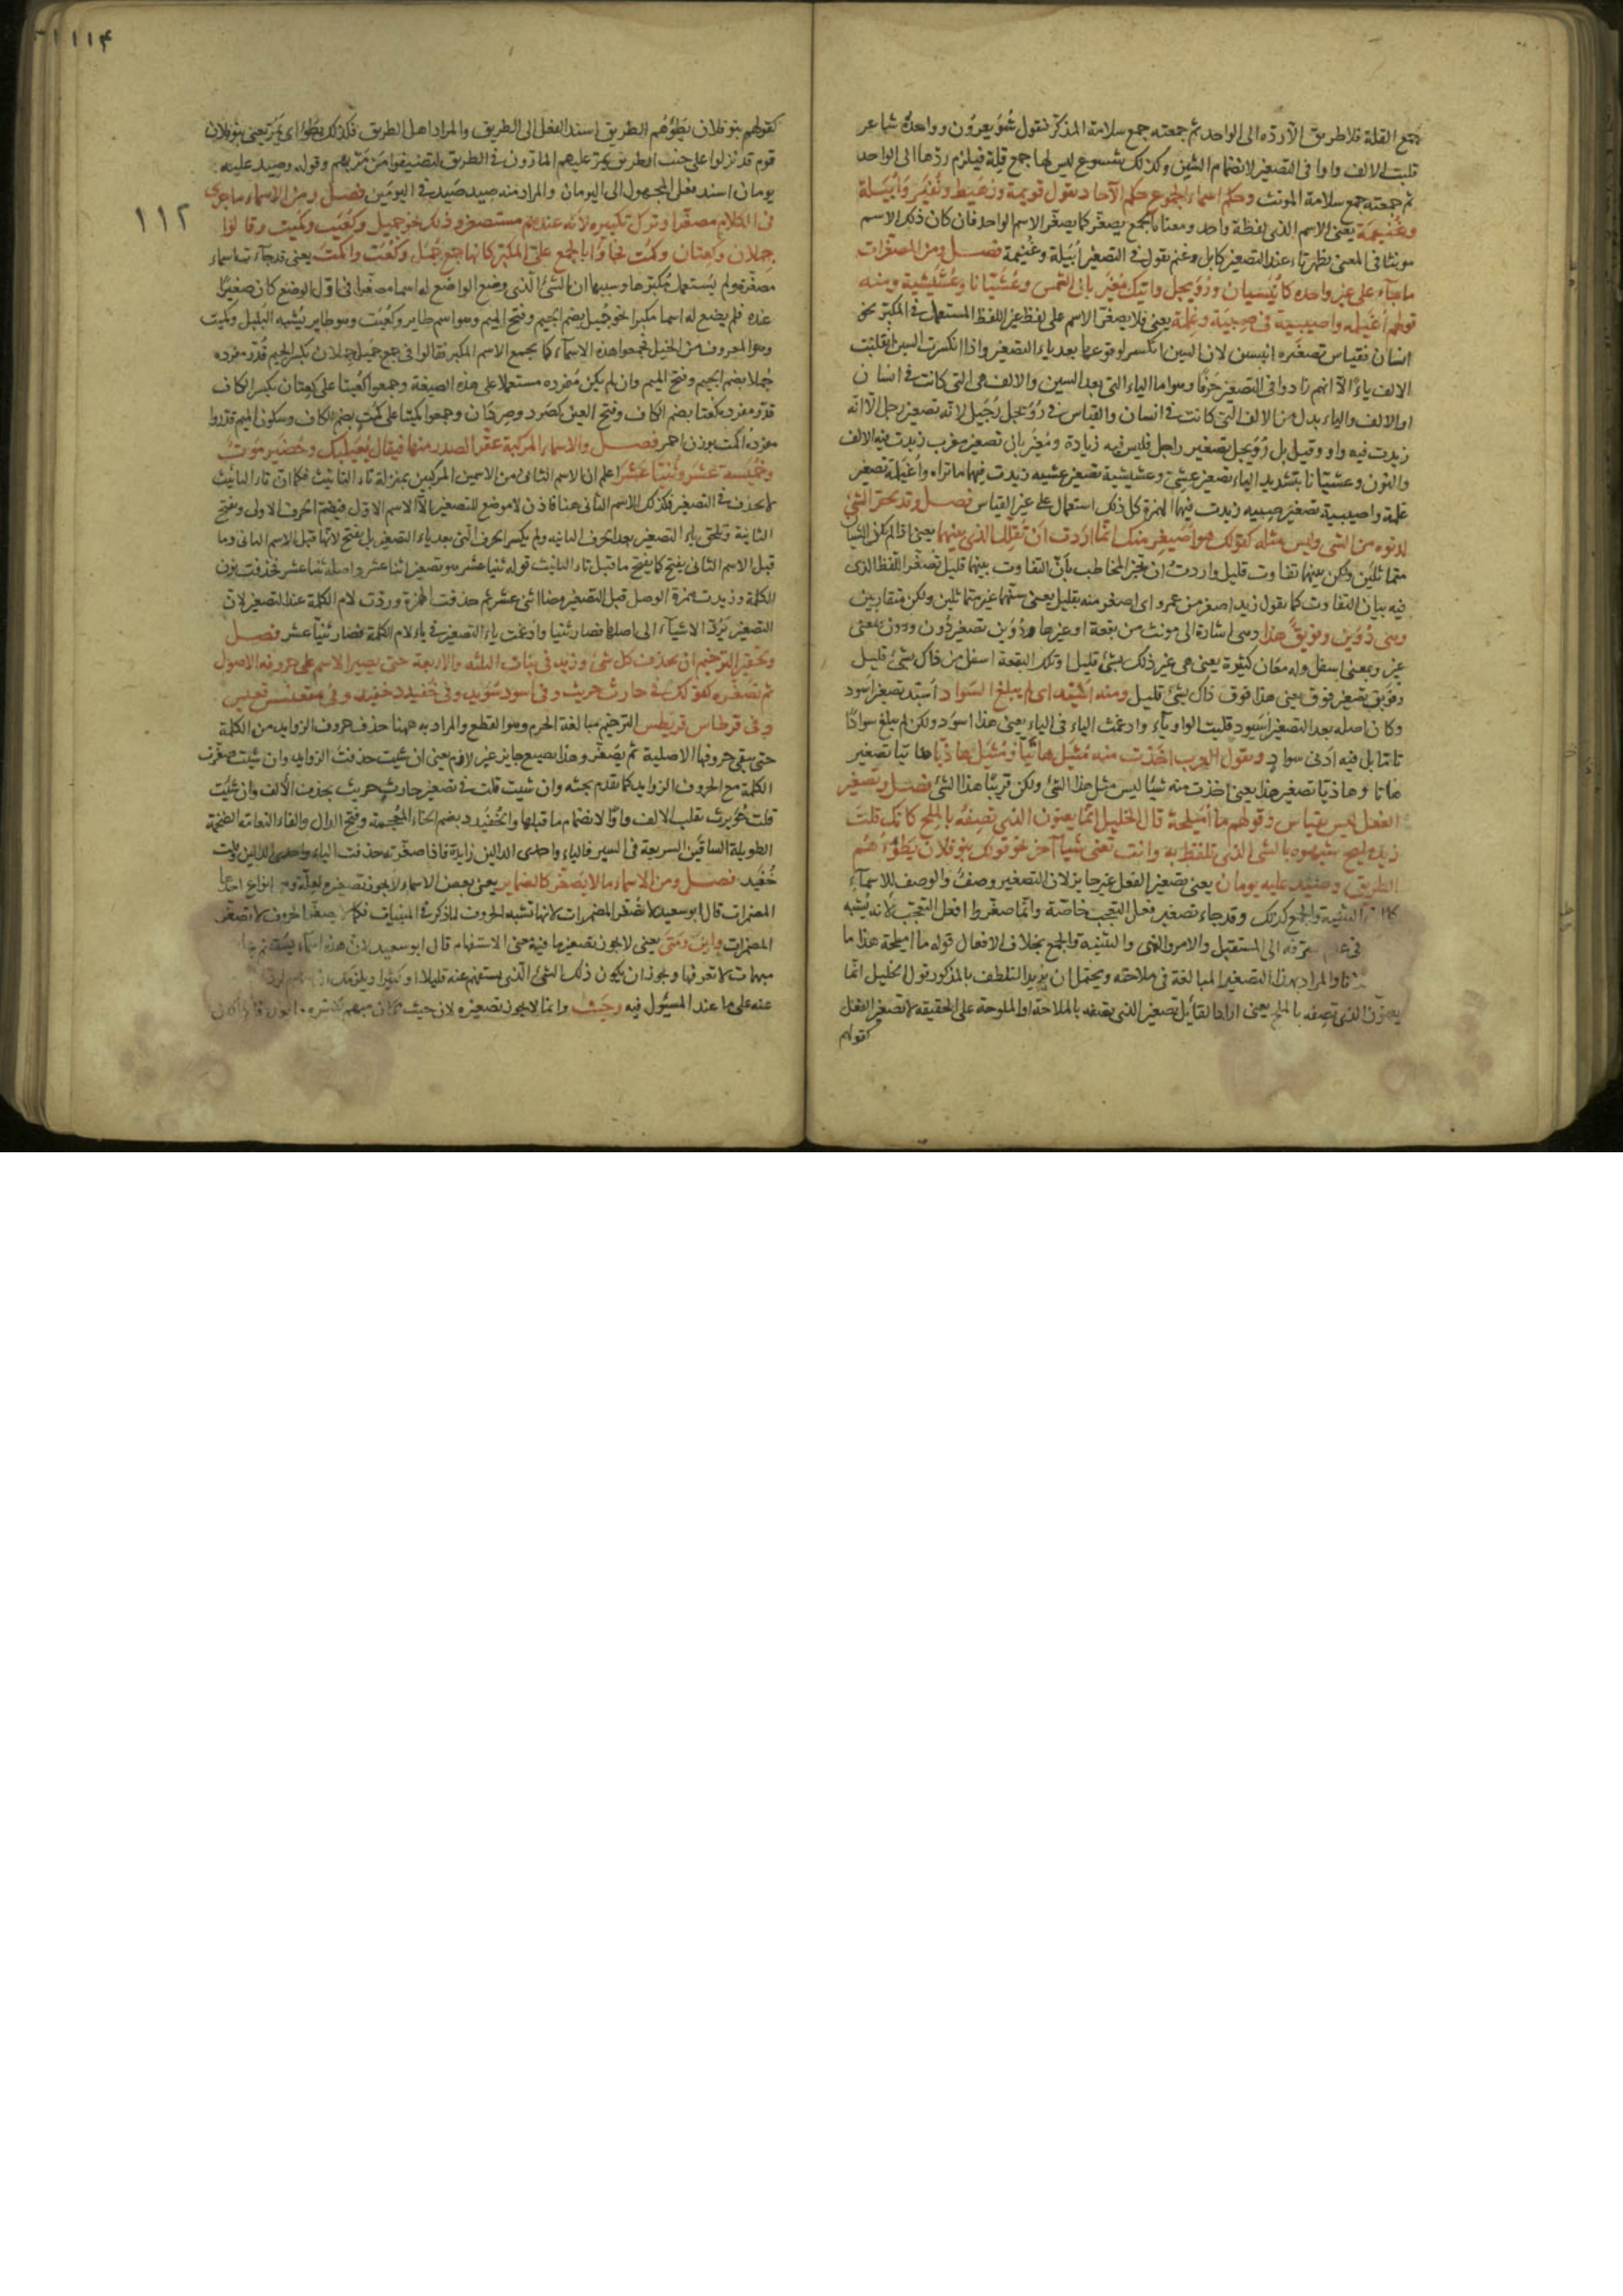 جمع القلة فلا طريق الا رده الى الواحد ثم جمعته جمع سلامة المذكر فنقول شويعرون وواحده شاعر
قلبت الالف واوا فى التصغير لانضمام الشين وكذلك شسوع ليس لها جمع قلة فيلزم ردها الى الواحد
ثم جمعته جمع سلامة المونث وحكم اسماء الجموع حكم الآحاد تقول قويمة ورهيط ونفير وأبيلة
وغنيمة يعنى الاسم الذى لفظه واحد ومعناه الجمع يصغر كما يصغر الاسم الواحد فان كان ذلك الاسم
مونثا فى المعنى يظهر تاء عند التصغير كابل وغنم تقول فى التصغير أبيلة وغنيمة فصل ومن المصغرات
ما جآء على غير واحده كانيسيان ورويجل واتيك مغيربان الشمس وعشيانا وعشيشية ومنه
قولهم أغيلمة واصيبية فى صبية وغلمة يعنى فلا يصغر الاسم على لفظ غير اللفظ المستعمل فى المكبر نحو
انسان فقياس تصغيره انيسين لان السين انكسر لوقوعها بعد ياء التصغير واذا انكسرت السين انقلبت
الالف ياءً الا انهم زادوا فى التصغير حرفا وهو اما الياء التى بعد السين والالف هى التى كانت فى انسان
او الالف والياء بدل من الالف التى كانت فى انسان والقياس فى رويجل رجيل لانه تصغير رجل الا انه
زيدت فيه واو وقيل بل رويجل تصغير راجل فليس فيه زيادة ومغيربان تصغير مغرب زيدت فيه الالف
والنون وعشيانا بتشديد الياء تصغير عشى وعشيشية تصغير عشيه زيدت فيها ما تراه وأغيلمة تصغير
غلمة واصيبية تصغير صبيه زيدت فيهما الهمزة كل ذلك استعمال على غير القياس فصل وقد يحقر الشئ
لدنوه من الشى وليس مثله كقولك هو اصيغر منك انما اردت ان تقلل الذى بينهما يعنى اذا لم يكن الشيان
متماثلين ولكن بينهما تفاوت قليل واردت ان تخبر المخاطب بأن التفاوت بينهما قليل تصغر اللفظ الذى
فيه بيان التفاوت كما تقول زيد اصغر من عمرو اى اصغر منه بقليل يعنى سنهما غير متماثلين ولكن متقاربين
ومنى دوين وفويق هذا وهى اشارة الى مونث من بقعة او غيرها ودوين تصغير دون ودون بمعنى
غير وبمعنى اسفل وله معان كثيرة يعنى هى غير ذلك بشئ قليل او تلك البقعة اسفل من ذاك بشئ قليل
وفويق تصغير فوق يعنى هذا فوق ذاك بشئ قليل ومنه اسيد اى لم يبلغ السواد اسيد تصغير اسود
وكان اصله بعد التصغير اسيود قلبت الواو ياء وادغمت الياء فى الياء يعنى هذا اسود ولكن لم يبلغ سوادا
تاما بل فيه ادنى سواد وتقول العرب اخذت منه مثيل هاتيا ومثيل هاذيا هاتيا تصغير
هاتا وهاذيا تصغير هذا يعنى اخذت منه شيئا ليس مثل هذا الشئ ولكن قريبا هذا الشئ فصل وتصغير
الفعل ليس بقياس وقولهم ما أميلحة قال الخليل انما يعنون الذى تصفه بالملح كانك قلت
زيد مليح شبهوه بالشى الذى تلفظ به وانت تعنى شيئا آخر نحو قولك بنو فلان يطؤهم
الطريق وصيد عليه يومان يعنى تصغير الفعل غير جايز لان التصغير وصف والوصف للاسمآء
التثنية والجمع كذلك وقد جاء تصغير فعل التعجب خاصة وانما صغروا افعل التعجب لانه يشبه
فى عدم تصرفه الى المستقبل والامر والنهى والتثنية والجمع بخلاف الافعال قوله ما اميلحة هذا ما
والمراد بهذا التصغير المبالغة فى ملاحته ويحتمل ان يريد التلطف بالمذكور تقول الخليل انما
يعنون الذى تصفه بالملح يعنى اراد القائل تصغير الذى يصفه بالملاحة او الملوحة على الحقيقه لا تصغير الفعل
كقولهم
١١۴
١١٢
كقولهم بنو فلان يطؤهم الطريق اسند الفعل الى الطريق والمراد اهل الطريق فكذلك يطؤ اى يمر يعنى بنو فلان
قوم قد نزلوا على جنب الطريق يمر عليهم المارون فى الطريق لتضيفوا من مر بهم وقوله وصيد عليه
يومان اسند فعل المجهول الى اليومان والمراد منه صيد صيد فى اليومين فصل ومن الاسماء ما جرى
فى الكلام مصغرا وترك تكبيره لانه عندهم مستصغر وذلك نحو جميل وكعيت وكميت وقالوا
جملان وكعتان وكمت فجاؤا بالجمع على المكبر كانها جمع جمل وكعت واكمت يعنى قد جآءت اسماء
مصغرة ولم يستعمل مكبرها وسببها ان الشئ الذى وضع الواضع له اسما مصغرا فى اول الوضع كان صغيرا
عنده فلم يضع له اسما مكبرا نحو جميل بضم الجيم وفتح الميم وهو اسم طاير وكعيت وهو طاير يشبه البلبل وكميت
وهو المعروف من الخيل فجمعوا هذه الاسمآء كما يجمع الاسم المكبر فقالوا فى جمع جميل جملان بكسر الجيم قدر مفرده
جملا بضم الجيم وفتح الميم وان لم يكن مفرده مستعملا على هذه الصيغة وجمعوا كعيتا على كعتان بكسر الكاف
قدر مفرده كعتا بضم الكاف وفتح العين كصرد وصردان وجمعوا كميتا على كمت بضم الكاف وسكون الميم قدروا
مفرده اكمت بوزن احمر فصل والاسماء المركبة يحقر الصدر منها فيقال بعيلبك وحضيرموت
وخميسة عشر وثنيا عشر اعلم ان الاسم الثانى من الاسمين المركبين بمنزلة تاء التانيث فكما ان تاء التانيث
لا يحذف فى التصغير فكذلك الاسم الثانى هنا فاذن لا موضع للتصغير الا الاسم الاول فيضم الحرف الاولى ويفتح
الثانية ويلحق ياء التصغير بعد الحرف الثانيه ولم يكسر الحرف التى بعد ياء التصغير بل يفتح لانها قبل الاسم الثانى وما
قبل الاسم الثانى يفتح كما يفتح ما قبل تاء التانيث قوله ثنيا عشر هو تصغير اثنا عشر واصله ثنيا عشر فحذفت نون
الكلمة وزيدت همزة الوصل قبل التصغير فى اثنى عشر ثم حذفت الهمزة وردت لام الكلمة عند التصغير لان
التصغير يرد الاشيآء الى اصلها فصار ثنيا وادغمت ياء التصغير فى ياء لام الكلمة فصار ثنيا عشر فصل
وتحقير الترخيم ان يحذف كل شئ زيد فى بنات الثلثه والاربعة حتى يصير الاسم على حروفه الاصول
ثم تصغره كقولك فى حارث حريث وفى اسود سويد وفى خفيدد خفيد وفى مقعنسس قعيس
وفى قرطاس قريطس الترخيم مبالغة الخرم وهو القطع والمراد به ههنا حذف حروف الزوايد من الكلمة
حتى يبقى حروفها الاصلية ثم يصغر وهذا يصيع جايز غير لازم يعنى ان شيت حذفت الزوايد وان شئت صغرت
الكلمة مع الحروف الزوايد كما تقدم بحثه وان شيت قلت فى تصغير حارث حريث بحذف الالف وان شئت
قلت حويرث بقلب الالف واوا لانضمام ما قبلها والخفيدد بضم الخاء المعجمة وفتح الدال والفاء النعامة الضخمة
الطويلة الساقين السريعة فى السير فالياء واحدى الدالين زايدة فاذا صغرته حذفت الياء واحدى الدالين وقلت
خفيد فصل ومن الاسماء ما لا يصغر كالضماير يعنى بعض الاسماء لا يجوز تصغيره لعلة وهى انواع احدها
المضمرات قال ابو سعيد لا تصغر المضمرات لانها تشبه الحروف لما ذكر فى المبنيات فكما لا يصغر الحروف لا تصغر
المضمرات واين ومتى يعنى لا يجوز تصغير ما فيه معنى الاستفهام قال ابو سعيد لان هذه اسمآء يستفهم بها
مبهمات لا تعرفها وجوز ان يكون ذلك الشئ الذى يستفهم عنه قليلا او كثيرا ويلزمك
عنه على ما عند المسئول فيه وحيث وانما لا يجوز تصغيره لان حيث مكان مبهم